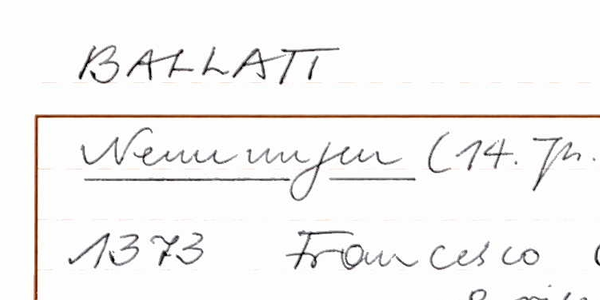 BALLATI
Nennungen (14. Jh.
1373 Francesco